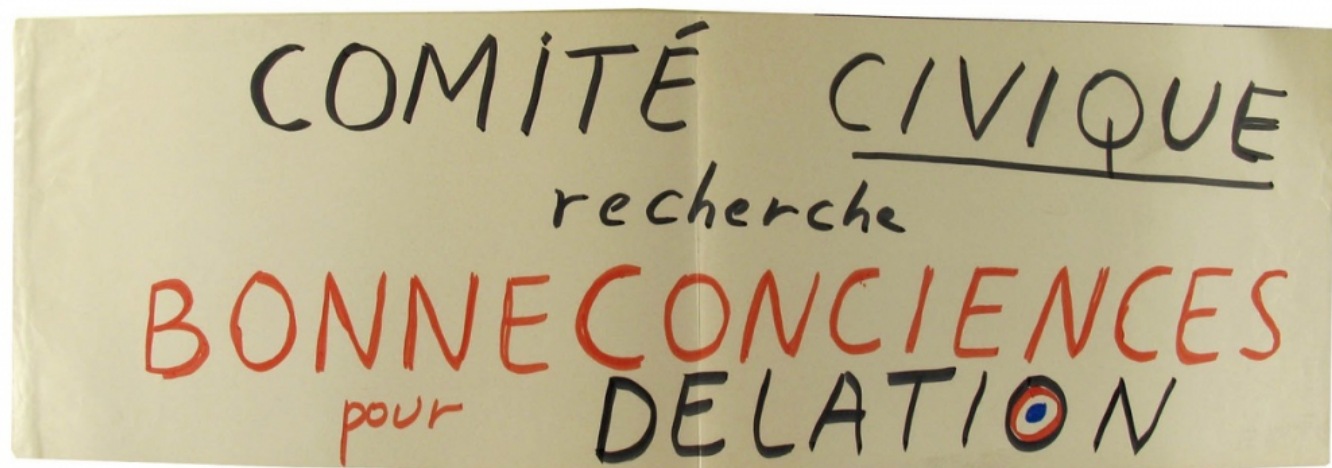 COMiTÉ CIVIQUE
recherche
BONNECONCIENCES
pour DELATION